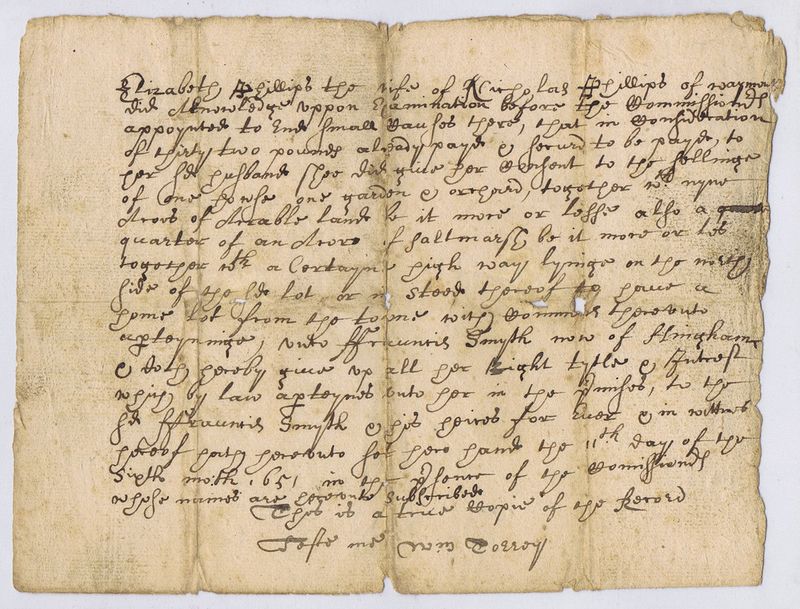 Elizabeth Phillips the wife of Nicholas Phillips of waym
did Acknowledge uppon Examination before the Commissionrs
appoynted to End small Causes there, that in Consideration
of thirty two pounds already payd & secured to be payde, to
her sd husband shee did give her Consent to the sellinge
of one howse one garden & orchard, together wth nyne
Acres of Arrable land be it more or lesse also a
quarter of an Acre of saltmarsh be it more or les
together wth a Certayne high way lyinge on the north
side of the sd lot or in steed thereof to have a
home lot from the towne with Commons thereunto
apteyninge, unto ffrauncis Smyth now of Hingham
& doth hereby give up all her Right tytle & Intrest
which by law apteynes unto her in the pmises, to the
sd ffrauncis Smyth & his heires for ever & in wittnes
hereof hath hereunto set here hand the 11th day of the
Sixth moth, 65, in the psence of the Comissionrs
whose names are hereunto subscribed
This is a true Copie of the Record
Teste me Wm Torrey